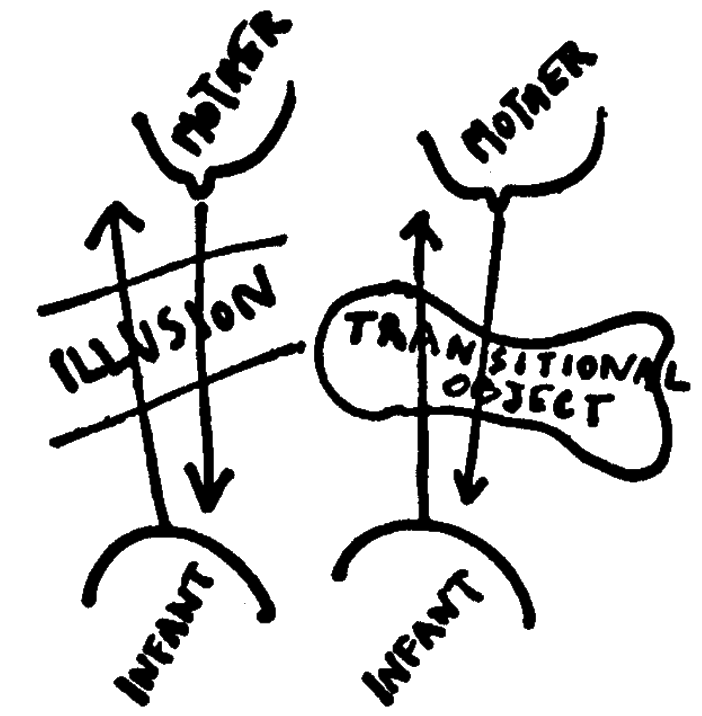 MOTHER
ILLUSION
INFANT
MOTHER
TRANSITIONAL
OBJECT
INFANT